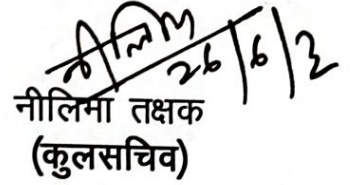 नीलिमा
26/6/2
नीलिमा तक्षक
(कुलसचिव)